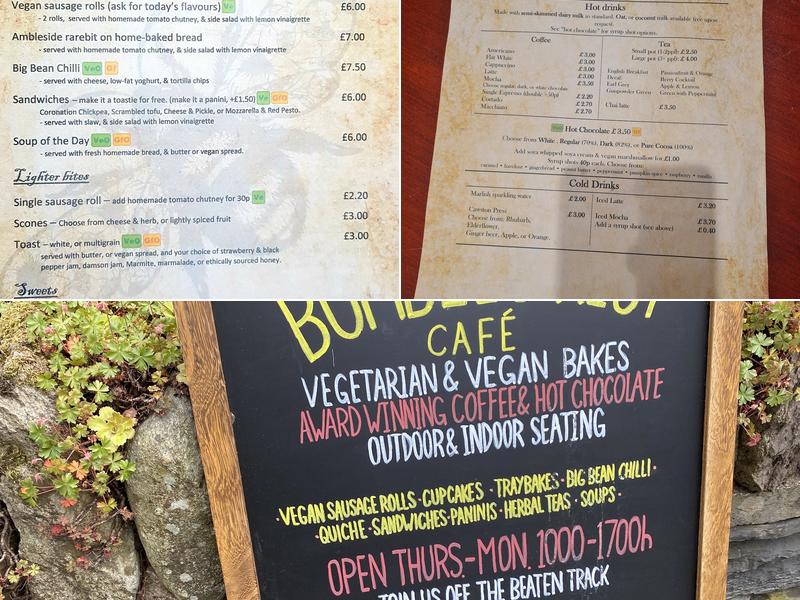 Vegan sausage rolls (ask for today's flavours) Ve £6.00
- 2 rolls, served with homemade tomato chutney, & side salad with lemon vinaigrette
Ambleside rarebit on home-baked bread £7.00
- served with homemade tomato chutney, & side salad with lemon vinaigrette
Big Bean Chilli VeO Gf £7.50
- served with cheese, low-fat yoghurt, & tortilla chips
Sandwiches – make it a toastie for free. (make it a panini, +£1.50) Ve GfO £6.00
Coronation Chickpea, Scrambled tofu, Cheese & Pickle, or Mozzarella & Red Pesto.
- served with slaw, & side salad with lemon vinaigrette
Soup of the Day VeO GfO £6.00
- served with fresh homemade bread, & butter or vegan spread.
Lighter bites
Single sausage roll – add homemade tomato chutney for 30p Ve £2.20
Scones – Choose from cheese & herb, or lightly spiced fruit £3.00
Toast – white, or multigrain VeO GfO £3.00
served with butter, or vegan spread, and your choice of strawberry & black
pepper jam, damson jam, Marmite, marmalade, or ethically sourced honey.
Sweets
Hot drinks
Made with semi-skimmed dairy milk as standard. Oat, or coconut milk available free upon
request.
See "hot chocolate" for syrup shot options.
Coffee
Americano £3.00
Flat White £3.00
Cappuccino £3.00
Latte £3.00
Mocha £3.50
Choose regular, dark, or white chocolate
Single Espresso (double + 50p) £2.20
Cortado £2.70
Macchiato £2.70
Tea
Small pot (1-2ppl): £2.50
Large pot (3+ ppl): £4.00
English Breakfast Passionfruit & Orange
Decaf. Berry Cocktail
Earl Grey Apple & Lemon
Gunpowder Green Green with Peppermint
Chai latte £3.50
Hot Chocolate £3.50
Choose from White, Regular (70%), Dark (82%), or Pure Cocoa (100%)
Add soya whipped soya cream & vegan marshmallow for £1.00
Syrup shots 40p each. Choose from:
caramel • hazelnut • gingerbread • peanut butter • peppermint • pumpkin spice • raspberry • vanilla
Cold Drinks
Marlish sparkling water £2.00
Cawston Press £3.00
Choose from: Rhubarb,
Elderflower,
Ginger beer, Apple, or Orange.
Iced Latte £3.20
Iced Mocha £3.70
Add a syrup shot (see above) £0.40
CAFÉ
VEGETARIAN & VEGAN BAKES
AWARD WINNING COFFEE & HOT CHOCOLATE
OUTDOOR & INDOOR SEATING
·VEGAN SAUSAGE ROLLS · CUPCAKES · TRAYBAKES · BIG BEAN CHILLI·
·QUICHE · SANDWICHES · PANINIS · HERBAL TEAS · SOUPS·
OPEN THURS.-MON. 1000-1700h
JOIN US OFF THE BEATEN TRACK